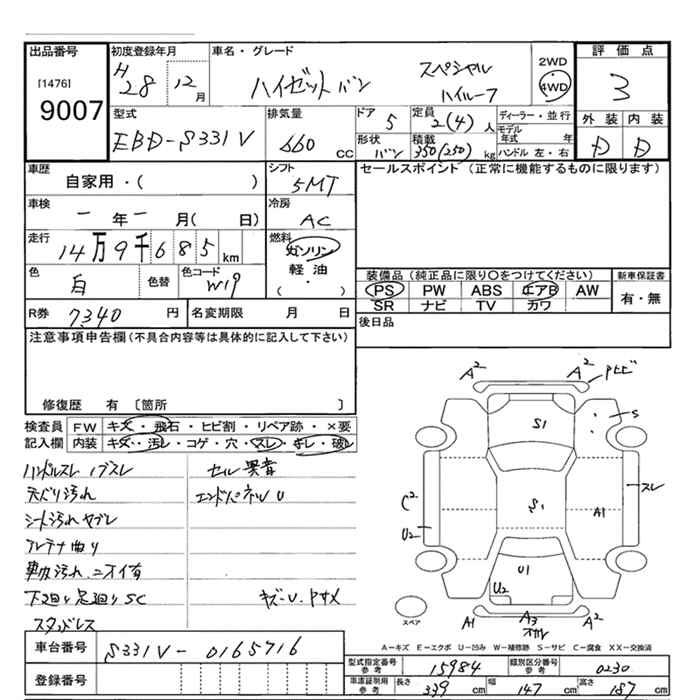 出品番号 初度登録年月 車名・グレード 2WD 評価点
[1476] H28 12月 ハイゼットバン スペシャル ハイルーフ 4WD 3
9007 外装 内装
型式 排気量 ドア 5 定員 2(4)人 ディーラー・並行
EBD-S331V 660cc 形状 バン 積載 350(250)kg モデル年式 年 D D
ハンドル 左・右
車歴 シフト セールスポイント(正常に機能するものに限ります)
自家用・( ) 5MT
車検 冷房
一年一月(日) AC
走行 燃料
14万9千685km ガソリン
軽油
色 色替 色コード ( ) 装備品(純正品に限り○をつけてください) 新車保証書
白 W19 PS PW ABS エアB AW 有・無
SR ナビ TV カワ
R券 7340円 名変期限 月 日 後日品
注意事項申告欄(不具合内容等は具体的に記入して下さい)
修復歴 有 〔箇所 〕
検査員 FW キズ・飛石・ヒビ割・リペア跡・×要
記入欄 内装 キズ・汚レ・コゲ・穴・スレ・キレ・破レ
ハンドルスレ ノブスレ セル異音
天バリ汚れ エンドパネルU
シート汚れ ヤブレ
アンテナ曲り
車内汚れ ニオイ有
下廻り足廻りSC キズ・U・Pサメ
スタッドレス
A2 A2 Pトビ
S1 S
スレ
C2 S1 A1
U2
U1
U2
スペア A1 A3 A2
A-キズ E-エクボ U-凹み W-補修跡 S-サビ C-腐食 XX-交換済
車台番号 S331V-0165716
登録番号
型式指定番号 参考 15984 類別区分番号 参考 0230
車庫証明用 参考 長さ 339cm 幅 147cm 高さ 187cm